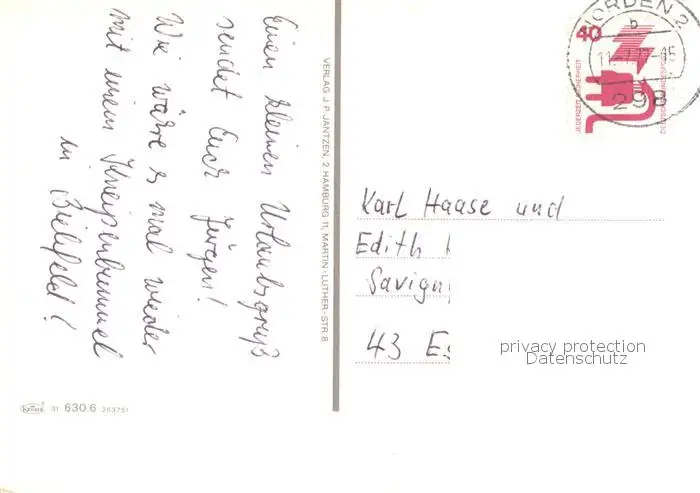 Einen kleinen Urlaubsgruß
sendet Euch Jürgen!
Wie wäre es mal wieder
mit einem Kneipenbummel
in Bielefeld!
VERLAG J. P. JANTZEN, 2 HAMBURG 11, MARTIN-LUTHER-STR. 8
NORDEN 2
b
298
40
JEDERZEIT SICHERHEIT
Karl Haase und
Edith
Savigny
43 Es
privacy protection
Datenschutz
Krüger 31 630.6 263751